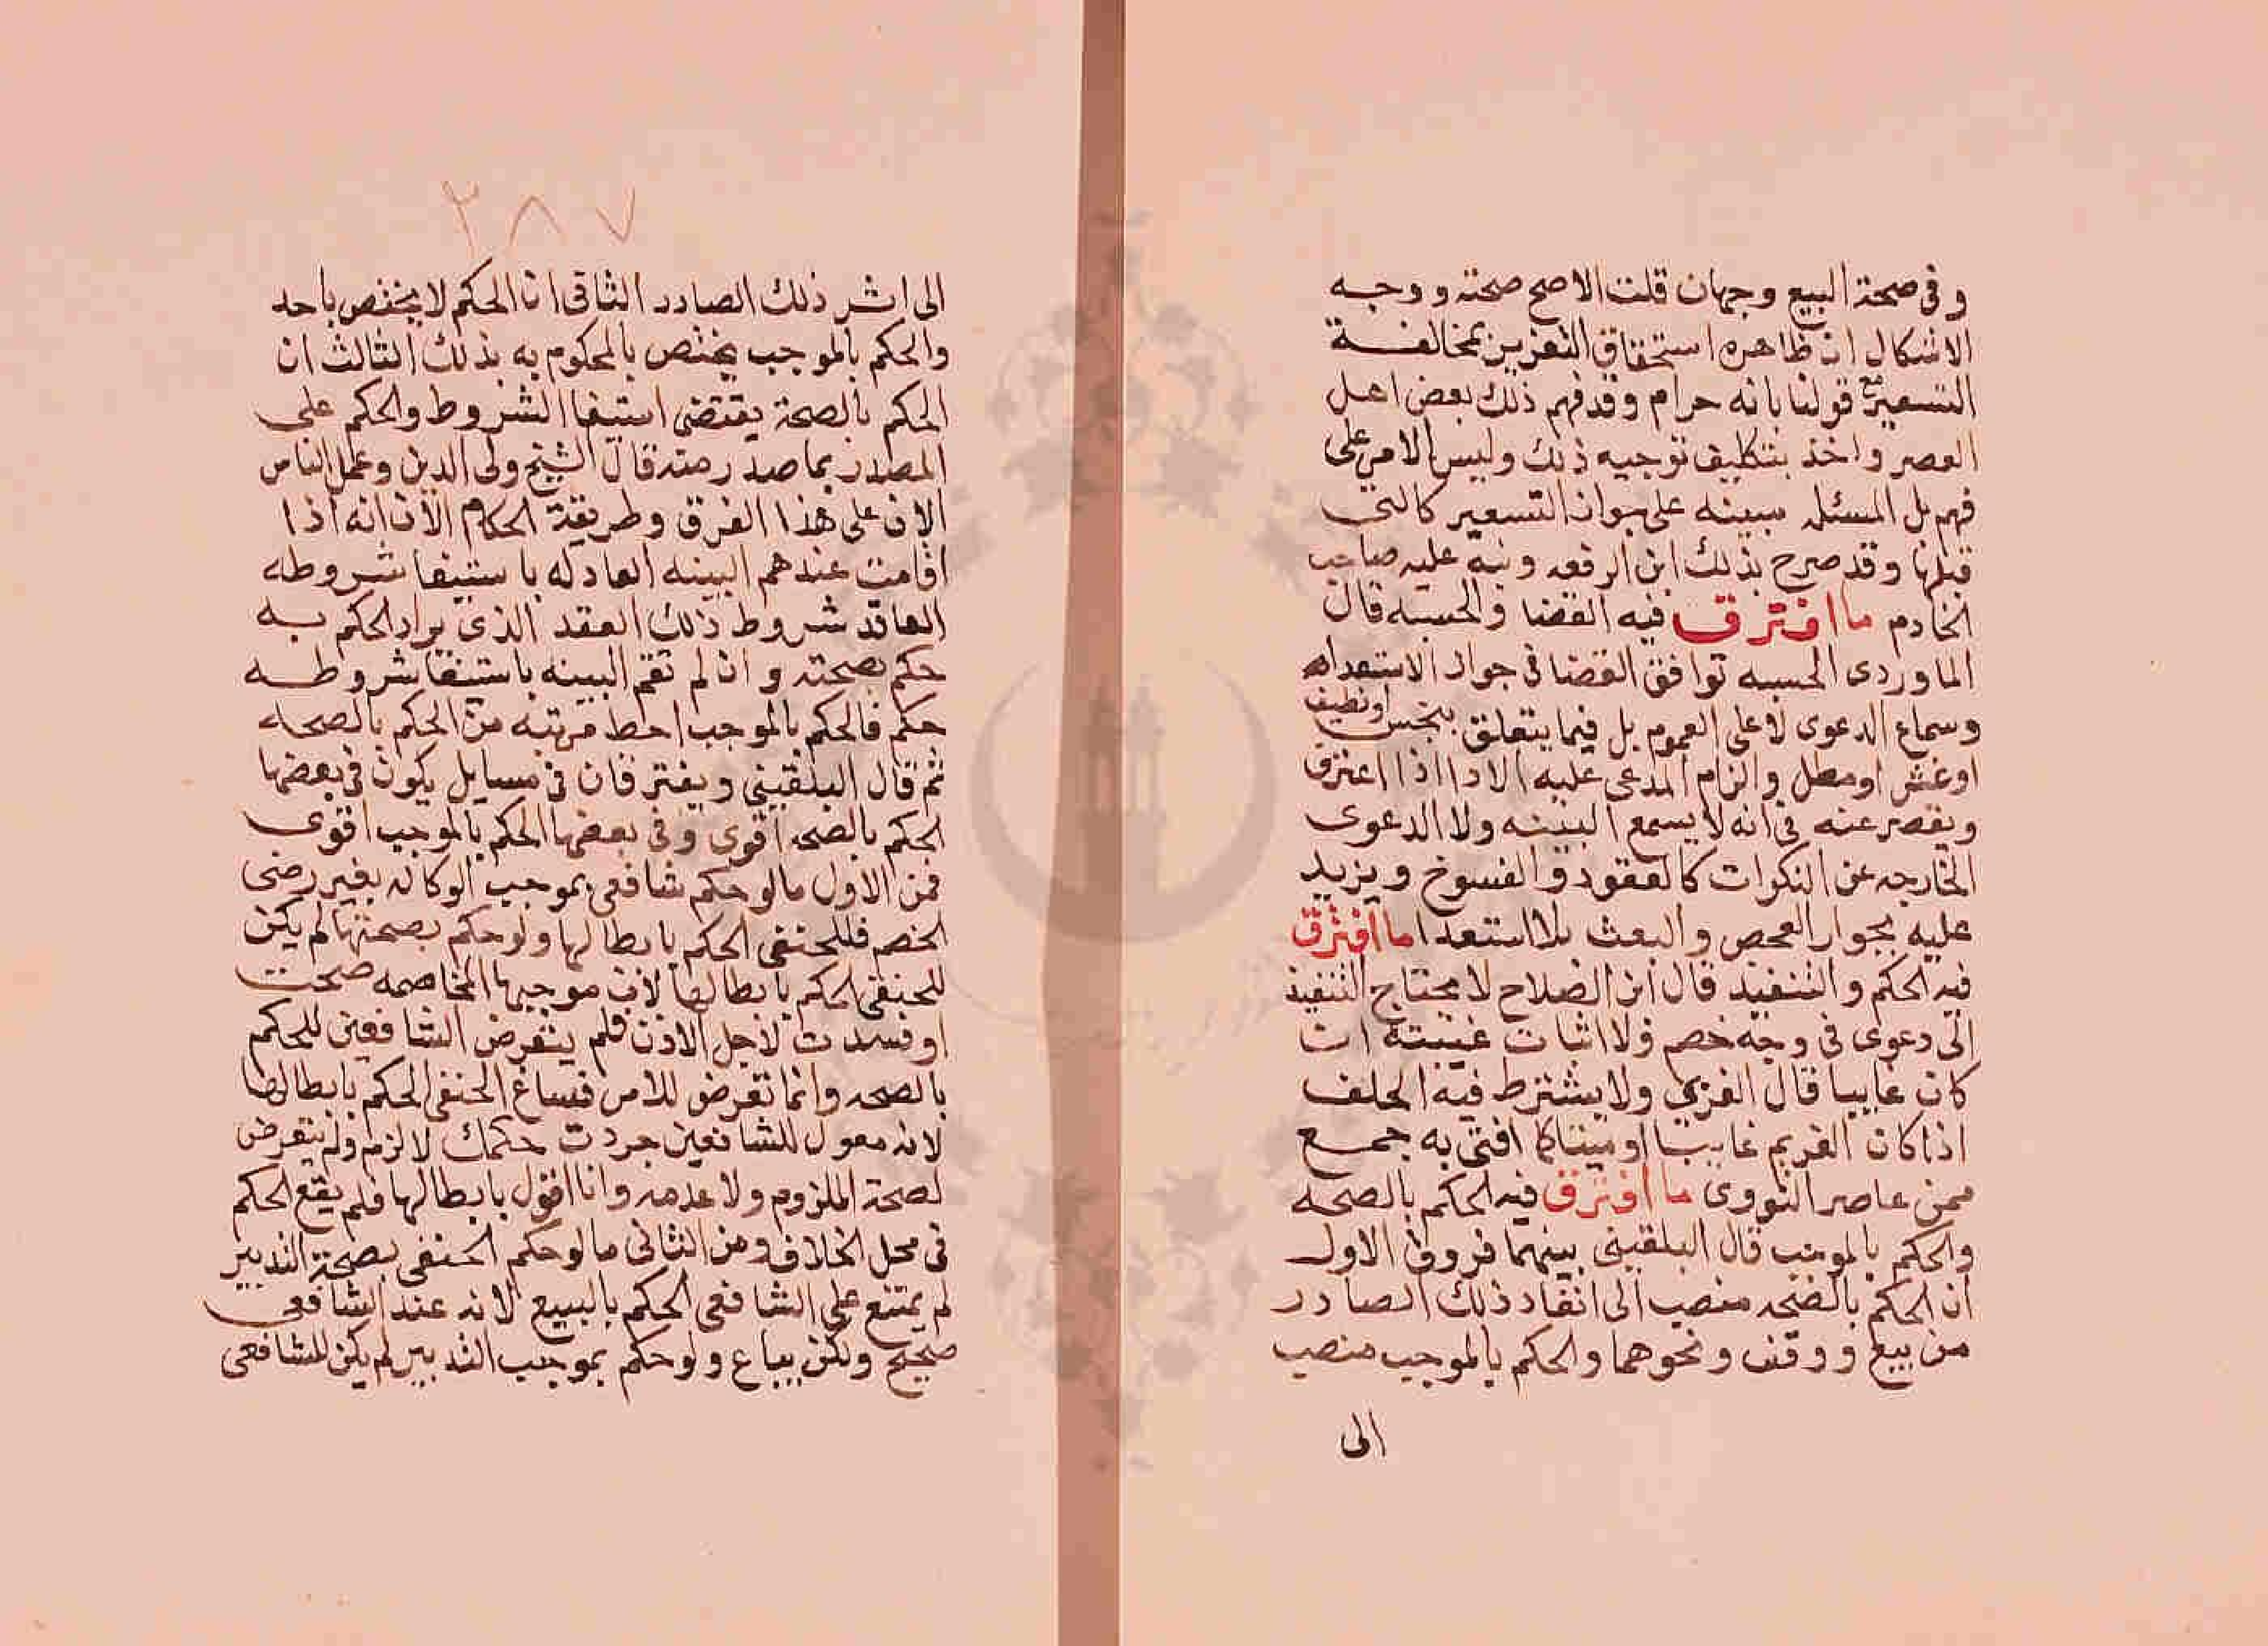 وفى صحة البيع وجهان قلت الاصح صحته ووجه
الاشكال ان ظاهره استحقاق التعزير بمخالفة
التسعير مع قولنا بانه حرام وقد فهم ذلك بعض اهل
العصر واخذ بتكليف توجيه ذلك وليس الامر على
فهم بل المسئله مبينه على جواز التسعير كالتى
قبلها وقد صرح بذلك ابن الرفعه ونبه عليه صاحب
الخادم ما افترق فيه القضا والحسبه قال
الماوردى الحسبه توافق القضا فى جواز الاستعداه
وسماع الدعوى لا على العموم بل فيما يتعلق ببخس او تطفيف
او غش او مطل والزام المدعى عليه الادا اذا اعترف
ويقصر عنه فى انه لا يسمع البينه ولا الدعوى
الخارجه عن النكرات كالعقود والفسوخ ويزيد
عليه بجواز الفحص والبحث بلا استعدا ما افترق
فيه الحكم والتنفيذ قال ابن الصلاح لا يحتاج التنفيذ
الى دعوى فى وجه خصم ولا اثبات غيبته ان
كان غايبا قال الغزى ولا يشترط فيه الحلف
اذا كان الغريم غايبا او ميتا كما افتى به جمع
ممن عاصر النووى ما افترق فيه الحكم بالصحه
والحكم بالموجب قال البلقينى بينهما فروق الاول
ان الحكم بالصحه منصب الى انفاد ذلك الصادر
من بيع ووقف ونحوهما والحكم بالموجب منصب
الى
٢٨٧
الى اثر ذلك الصادر الثانى ان الحكم لا يختص باحد
والحكم بالموجب يختص بالمحكوم به بذلك الثالث ان
الحكم بالصحة يقتضى استيفا الشروط والحكم على
المصدر بما صدر منه قال الشيخ ولى الدين وعمل الناس
الان على هذا الفرق وطريقة الحكام الان انه اذا
اقامت عندهم البينه العادله باستيفا شروطه
العاقد شروط ذلك العقد الذى يراد الحكم به
حكم بصحته وان لم تقم البينه باستيفا شروطه
حكم فالحكم بالموجب احط مرتبه من الحكم بالصحه
ثم قال البلقينى ويفترقان فى مسايل يكون فى بعضها
الحكم بالصحه اقوى وفى بعضها الحكم بالموجب اقوى
فمن الاول ما لو حكم شافعى بموجب الوكاله بغير رضى
الخصم فللحنفى الحكم بابطالها ولو حكم بصحتها لم يكن
للحنفى الحكم بابطالها لان موجبها المخاصمه صحت
او فسدت لاجل الاذن فلم يتعرض الشافعى للحكم
بالصحه وانما تعرض للامر فساغ الحنفى الحكم بابطالها
لانه معول للشافعين جردت حكمك لا لزم ولم يتعرض
لصحة الملزوم ولا عدمه وانا اقول بابطالها فلم يقع الحكم
فى محل الخلاف ومن الثانى ما لو حكم الحنفى بصحة التدبير
لم يمتنع على الشافعى الحكم بالبيع لانه عند الشافعى
صحيح ولكن يباع ولو حكم بموجب التدبير لم يكن للشافعى